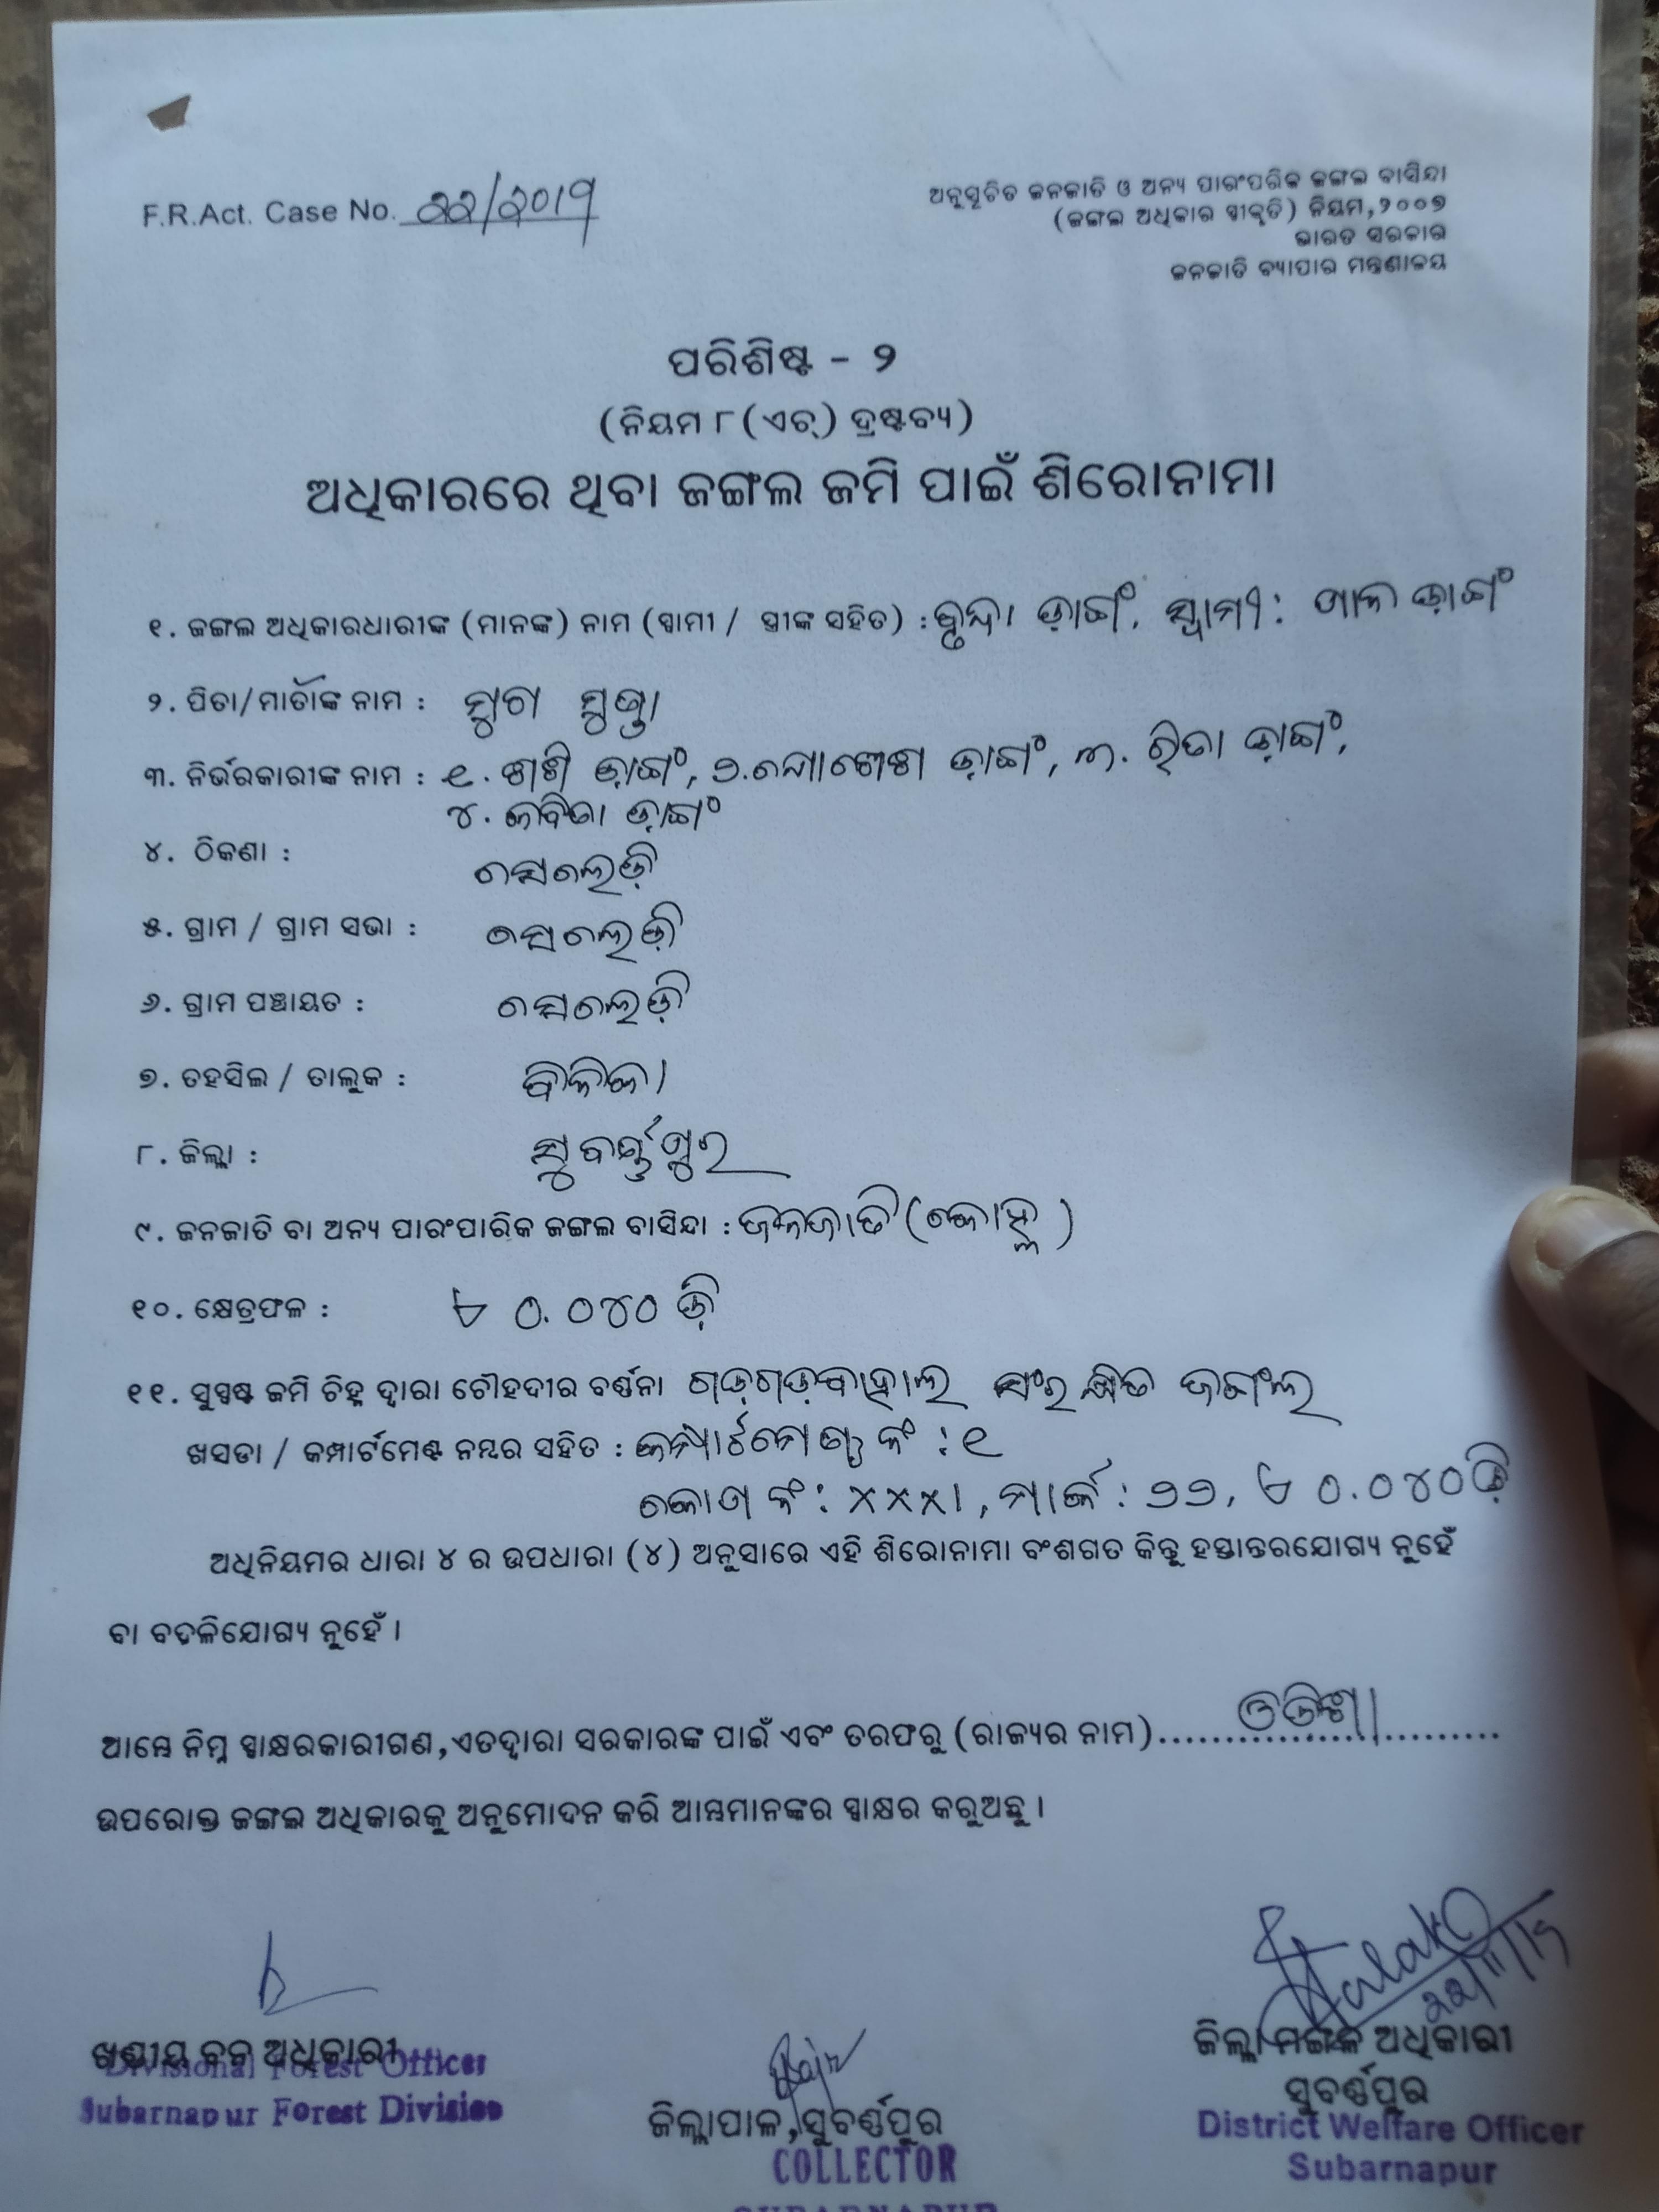 F.R.Act. Case No. 22/2017
ଅନୁସୂଚିତ ଜନଜାତି ଓ ଅନ୍ୟ ପାରଂପରିକ ଜଙ୍ଗଲ ବାସିନ୍ଦା
(ଜଙ୍ଗଲ ଅଧିକାର ସ୍ୱୀକୃତି) ନିୟମ,୨୦୦୭
ଭାରତ ସରକାର
ଜନଜାତି ବ୍ୟାପାର ମନ୍ତ୍ରଣାଳୟ
ପରିଶିଷ୍ଟ - ୨
(ନିୟମ ୮ (ଏଚ୍) ଦ୍ରଷ୍ଟବ୍ୟ)
ଅଧିକାରରେ ଥିବା ଜଙ୍ଗଲ ଜମି ପାଇଁ ଶିରୋନାମା
୧. ଜଙ୍ଗଲ ଅଧିକାରଧାରୀଙ୍କ (ମାନଙ୍କ) ନାମ (ସ୍ୱାମୀ / ସ୍ତ୍ରୀଙ୍କ ସହିତ) : ବୃନ୍ଦା ଡ଼ାଗଂ, ସ୍ୱାମୀ: ଡ଼ାଗଂ
୨. ପିତା/ମାତାଙ୍କ ନାମ :
୩. ନିର୍ଭରକାରୀଙ୍କ ନାମ : ୧. ଶଶି ଡ଼ାଗଂ, ୨. ଡ଼ାଗଂ, ୩. ରିତା ଡ଼ାଗଂ,
୪. କବିତା ଡ଼ାଗଂ
୪. ଠିକଣା : ସେଲେଡ଼ି
୫. ଗ୍ରାମ / ଗ୍ରାମ ସଭା : ସେଲେଡ଼ି
୬. ଗ୍ରାମ ପଞ୍ଚାୟତ : ସେଲେଡ଼ି
୭. ତହସିଲ / ତାଲୁକ : ବିନିକା
୮. ଜିଲ୍ଲା : ସୁବର୍ଣ୍ଣପୁର
୯. ଜନଜାତି ବା ଅନ୍ୟ ପାରଂପାରିକ ଜଙ୍ଗଲ ବାସିନ୍ଦା : ଜନଜାତି (କୋହ୍ଲ)
୧୦. କ୍ଷେତ୍ରଫଳ : ୦.୦୪୦ ଡ଼ି
୧୧. ସୁସ୍ପଷ୍ଟ ଜମି ଚିହ୍ନ ଦ୍ୱାରା ଚୌହଦୀର ବର୍ଣ୍ଣନା ଗଡ଼ଗଡ଼ବାହାଲ ସଂରକ୍ଷିତ ଜଗଂଲ
ଖସଡା / କମ୍ପାର୍ଟମେଣ୍ଟ ନମ୍ବର ସହିତ : କମ୍ପାର୍ଟମେଣ୍ଟ ନଂ : ୧
ନଂ : XXXI, ମାର୍କ : ୨୨, ୦.୦୪୦ ଡ଼ି
ଅଧିନିୟମର ଧାରା ୪ ର ଉପଧାରା (୪) ଅନୁସାରେ ଏହି ଶିରୋନାମା ବଂଶଗତ କିନ୍ତୁ ହସ୍ତାନ୍ତରଯୋଗ୍ୟ ନୁହେଁ
ବା ବଦଳିଯୋଗ୍ୟ ନୁହେଁ ।
ଆମ୍ଭେ ନିମ୍ନ ସ୍ୱାକ୍ଷରକାରୀଗଣ,ଏତଦ୍ୱାରା ସରକାରଙ୍କ ପାଇଁ ଏବଂ ତରଫରୁ (ରାଜ୍ୟର ନାମ)..........ଓଡିଶା..........
ଉପରୋକ୍ତ ଜଙ୍ଗଲ ଅଧିକାରକୁ ଅନୁମୋଦନ କରି ଆମ୍ଭମାନଙ୍କର ସ୍ୱାକ୍ଷର କରୁଅଛୁ ।
22/11/17
ଖଣ୍ଡୀୟ ବନ ଅଧିକାରୀ
Divisional Forest Officer
Subarnapur Forest Division
ଜିଲ୍ଲାପାଳ,ସୁବର୍ଣ୍ଣପୁର
COLLECTOR
SUBARNAPUR
ଜିଲ୍ଲା ମଙ୍ଗଳ ଅଧିକାରୀ
ସୁବର୍ଣ୍ଣପୁର
District Welfare Officer
Subarnapur